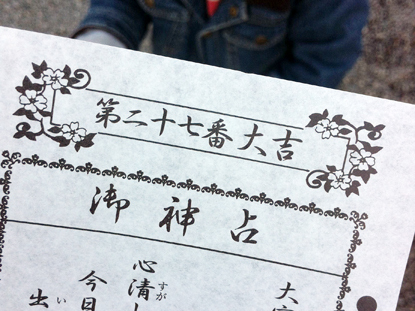 第二十七番 大吉
御神占
大
心清
すが
今日
出
い